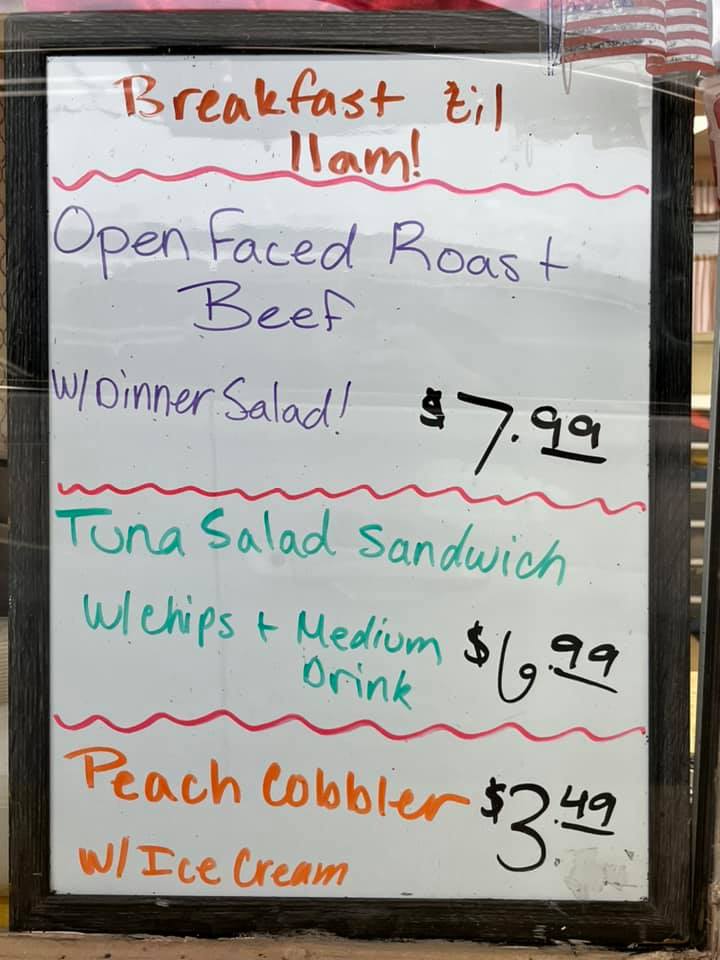 Breakfast til
11am!
Open Faced Roast
Beef
W/Dinner Salad! $7.99
Tuna Salad Sandwich
W/chips + Medium $6.99
Drink
Peach Cobbler $3.49
W/ Ice Cream